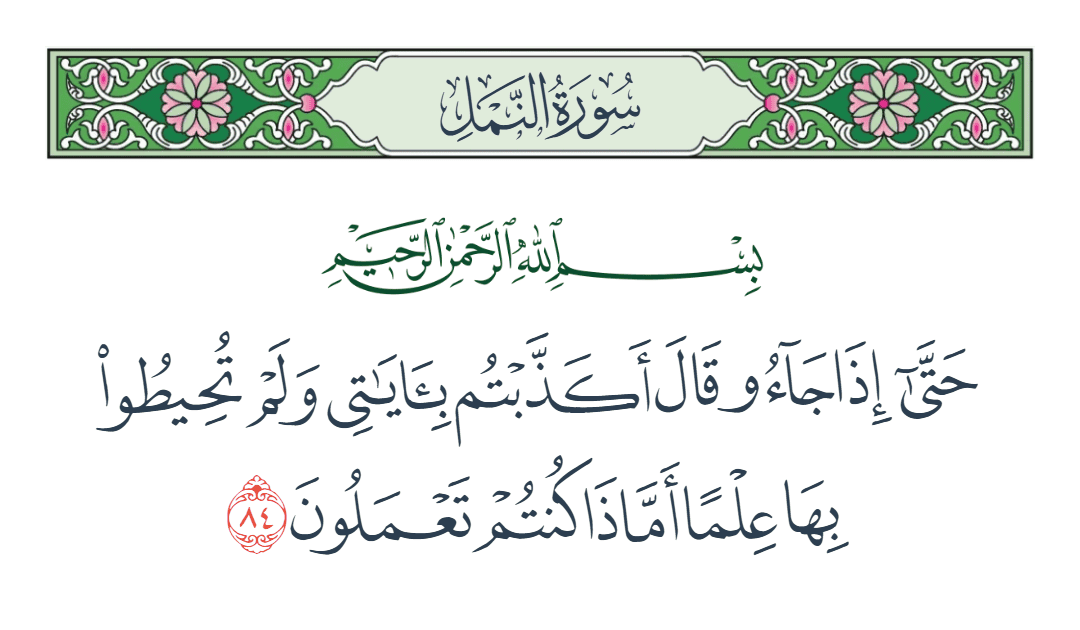 سُورَةُ النَّمْلِ
بِسْمِ ٱللَّهِ ٱلرَّحْمَٰنِ ٱلرَّحِيمِ
حَتَّىٰٓ إِذَا جَآءُو قَالَ أَكَذَّبْتُم بِـَٔايَٰتِى وَلَمْ تُحِيطُوا۟
بِهَا عِلْمًا أَمَّاذَا كُنتُمْ تَعْمَلُونَ ٨٤